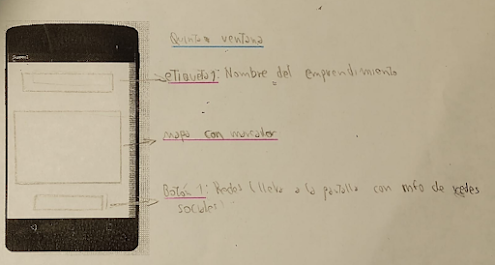 Quinta ventana
Screen1
etiqueta 1: Nombre del emprendimiento
mapa con marcador
Botón 1: Redes (lleva a la pantalla con info de redes
sociales)